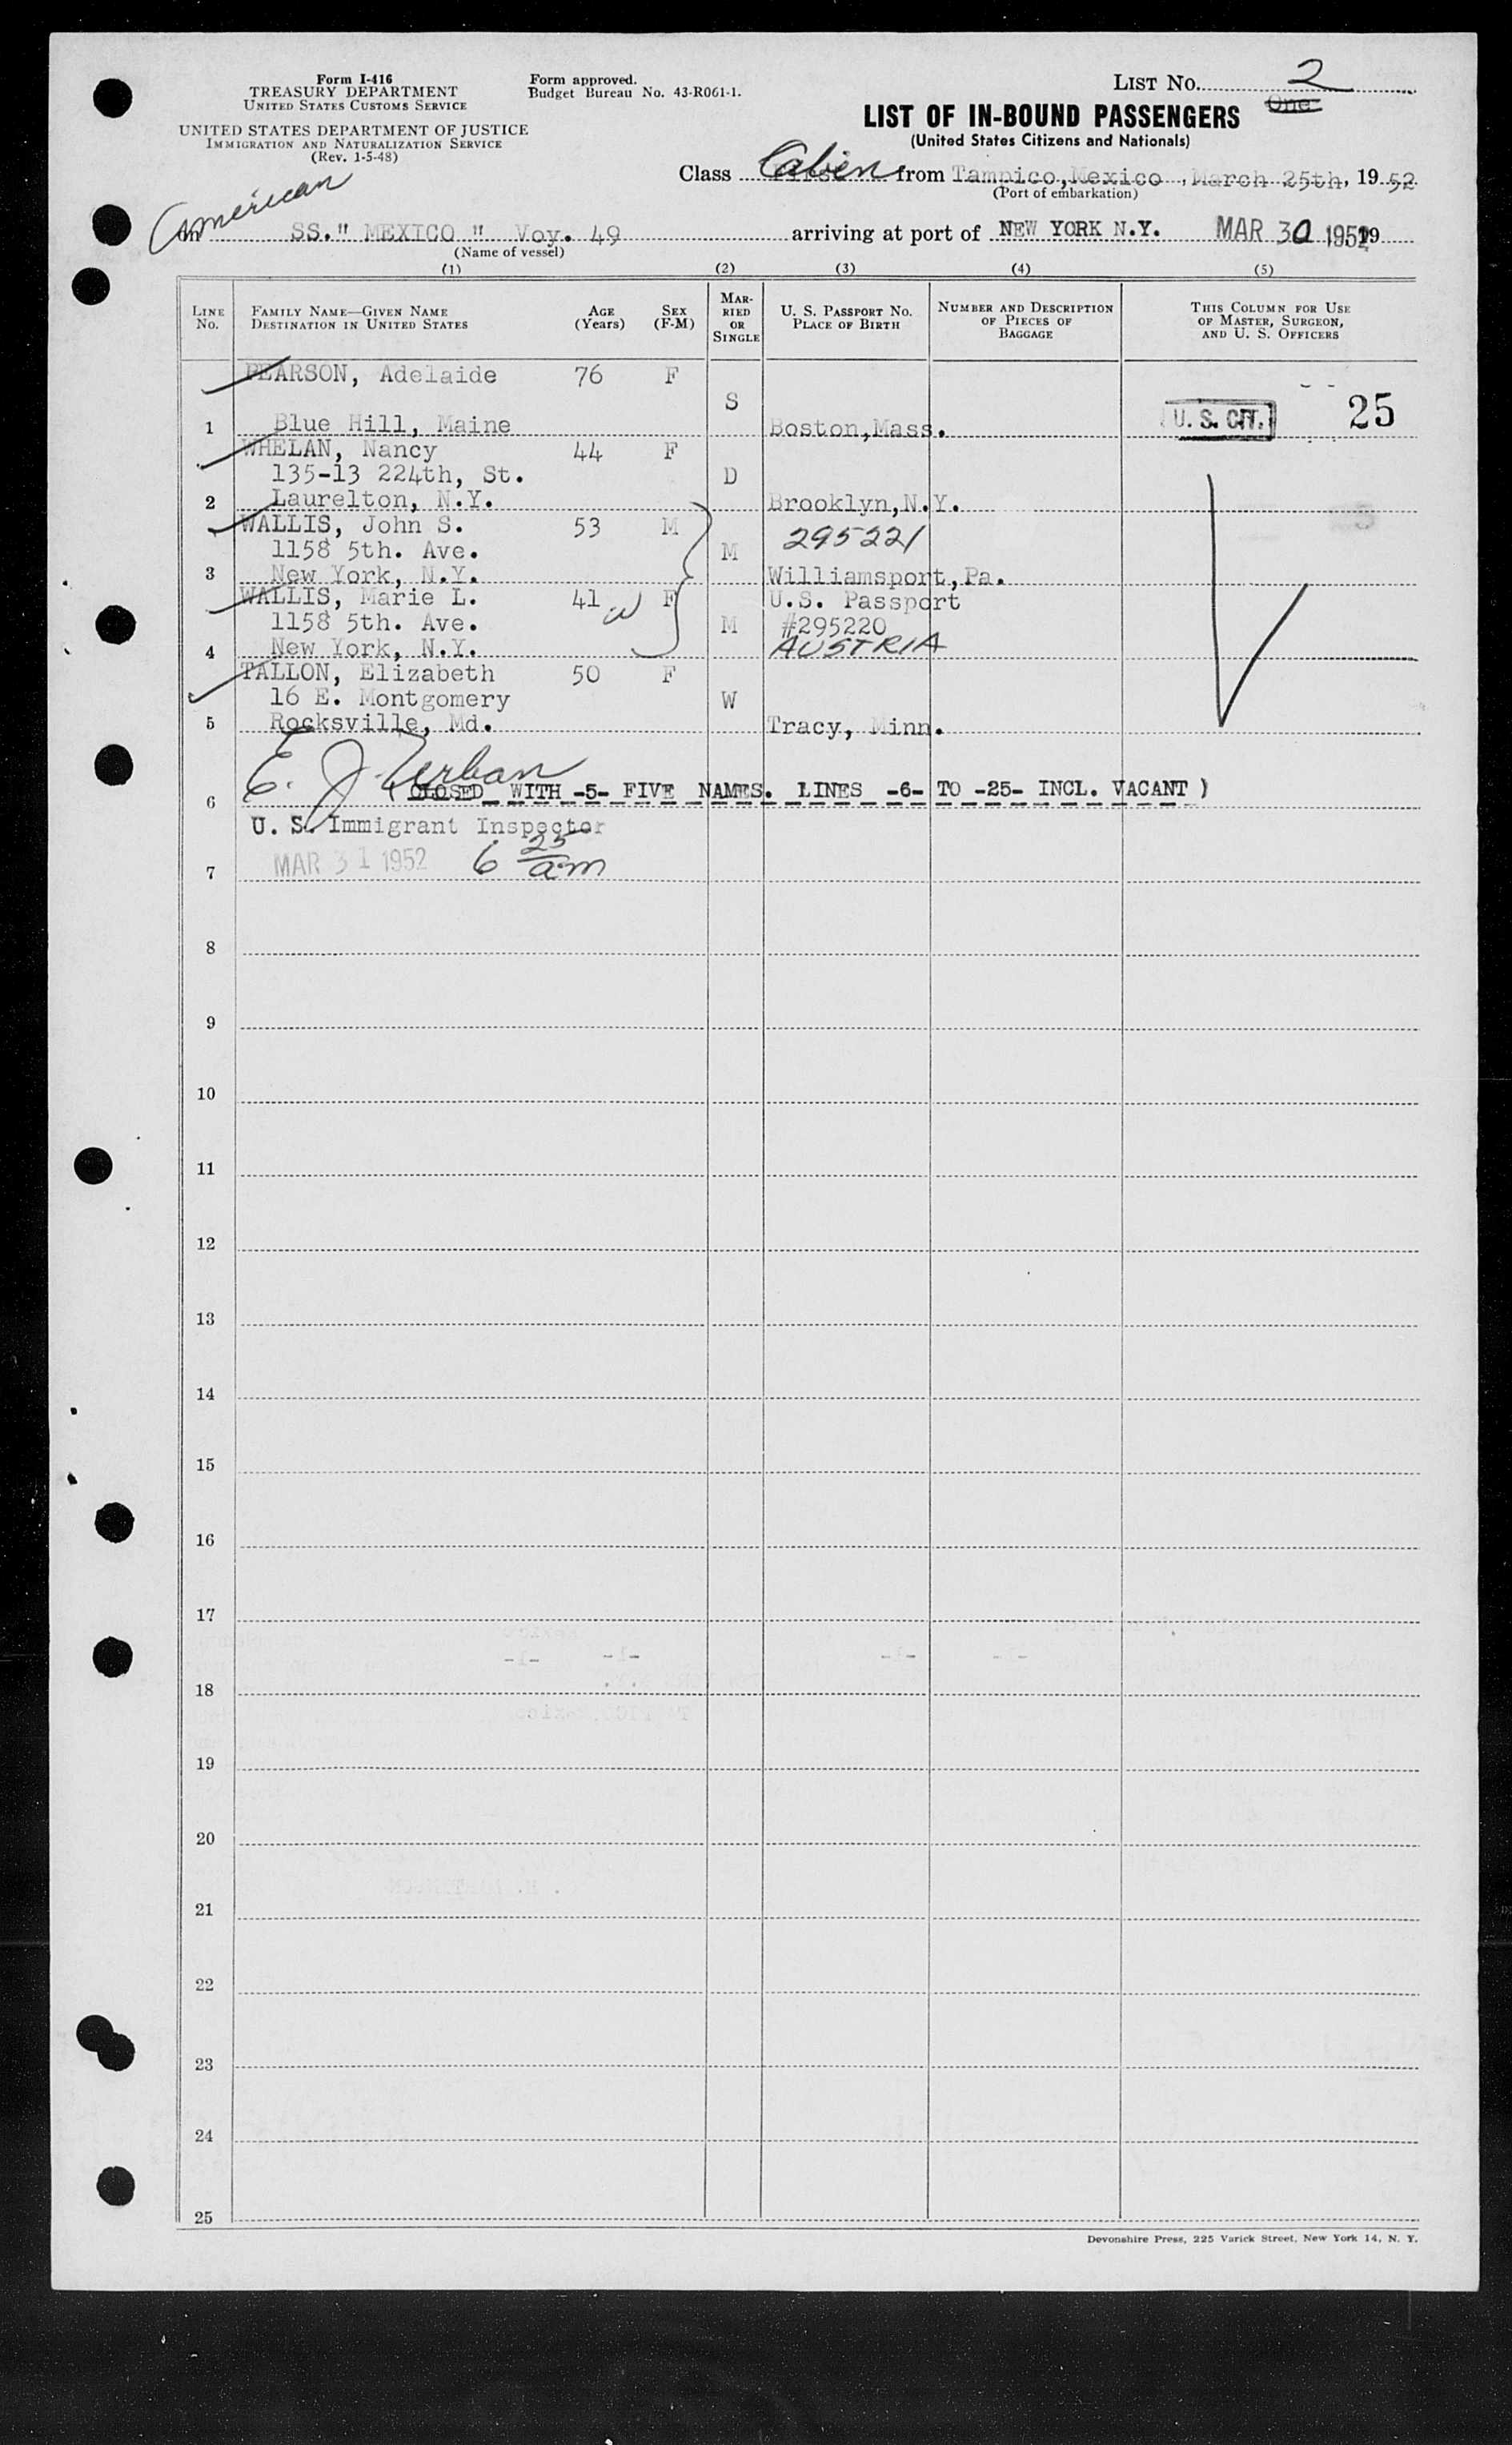 Form I-416
TREASURY DEPARTMENT
UNITED STATES CUSTOMS SERVICE
UNITED STATES DEPARTMENT OF JUSTICE
IMMIGRATION AND NATURALIZATION SERVICE
(Rev. 1-5-48)
Form approved.
Budget Bureau No. 43-R061-1.
LIST No. 2
One
LIST OF IN-BOUND PASSENGERS
(United States Citizens and Nationals)
Class Cabin from Tampico, Mexico, March 25th, 19 52
(Port of embarkation)
American
on SS." MEXICO " Voy. 49 arriving at port of NEW YORK N.Y. MAR 30 1952 19
(Name of vessel)
(1) (2) (3) (4) (5)
LINE No. FAMILY NAME—GIVEN NAME DESTINATION IN UNITED STATES AGE (Years) SEX (F-M) MARRIED OR SINGLE U. S. PASSPORT No. PLACE OF BIRTH NUMBER AND DESCRIPTION OF PIECES OF BAGGAGE THIS COLUMN FOR USE OF MASTER, SURGEON, AND U. S. OFFICERS
PEARSON, Adelaide 76 F
S
U. S. CIT. 25
1 Blue Hill, Maine Boston, Mass.
WHELAN, Nancy 44 F
135-13 224th, St. D
2 Laurelton, N.Y. Brooklyn, N.Y.
WALLIS, John S. 53 M 295221
1158 5th. Ave. M
3 New York, N.Y. Williamsport, Pa.
WALLIS, Marie L. 41 w F U.S. Passport
1158 5th. Ave. M #295220
4 New York, N.Y. AUSTRIA
TALLON, Elizabeth 50 F
16 E. Montgomery W
5 Rocksville, Md. Tracy, Minn.
E. J. Urban
6 ( CLOSED WITH -5- FIVE NAMES. LINES -6- TO -25- INCL. VACANT )
U. S. Immigrant Inspector
7 MAR 31 1952 6 25 am
8
9
10
11
12
13
14
15
16
17
18
19
20
21
22
23
24
25
Devonshire Press, 225 Varick Street, New York 14, N. Y.